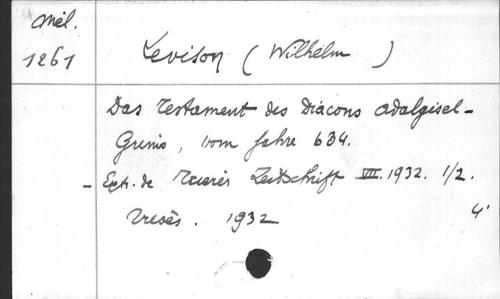 Mél.
1261
Levison (Wilhelm)
Das Testament des Diacons Adalgisel-
Grimo, vom Jahre 634.
- Extr. de Trierer Zeitschrift VII. 1932. 1/2.
Trèves. 1932
4°